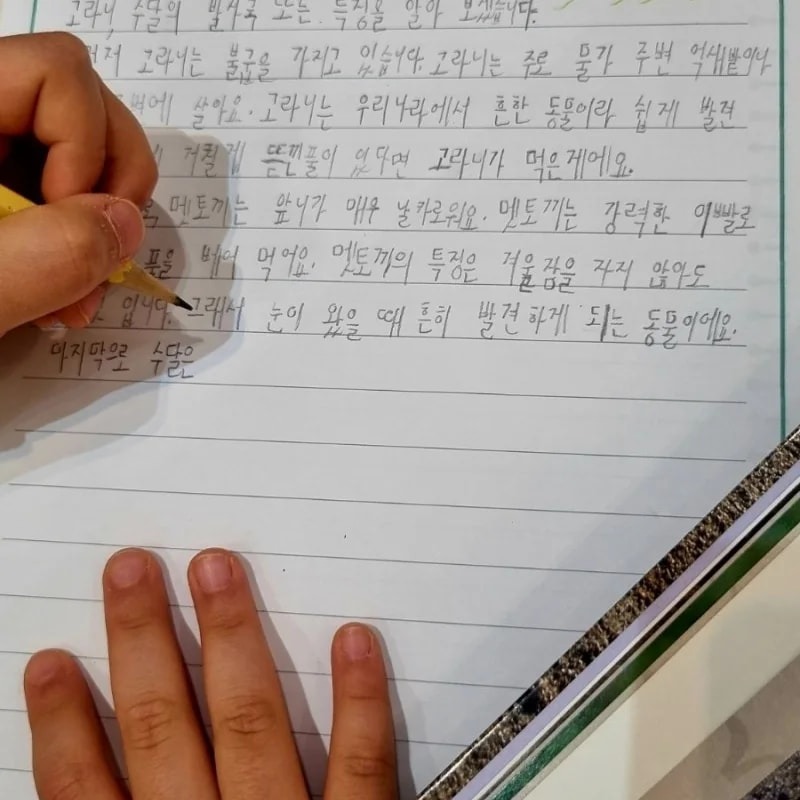 고라니, 수달의 발자국 또는 특징을 알아 보겠습니다.
고라니는 불굽을 가지고 있습니다. 고라니는 주로 물가 주변 억새밭이나
살아요. 고라니는 우리나라에서 흔한 동물이라 쉽게 발견
뜯긴풀이 있다면 고라니가 먹은게에요.
멧토끼는 앞니가 매우 날카로워요. 멧토끼는 강력한 이빨로
풀을 베어 먹어요. 멧토끼의 특징은 겨울잠을 자지 않아도
입니다. 그래서 눈이 왔을 때 흔히 발견하게 되는 동물이에요.
마지막으로 수달은